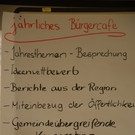 jährliches Bürgercafe
- Jahresthemen - Besprechung
- Ideenwettbewerb
- Berichte aus der Region
- Miteinbezug der Öffentlichkeit
- Gemeindeübergreifende